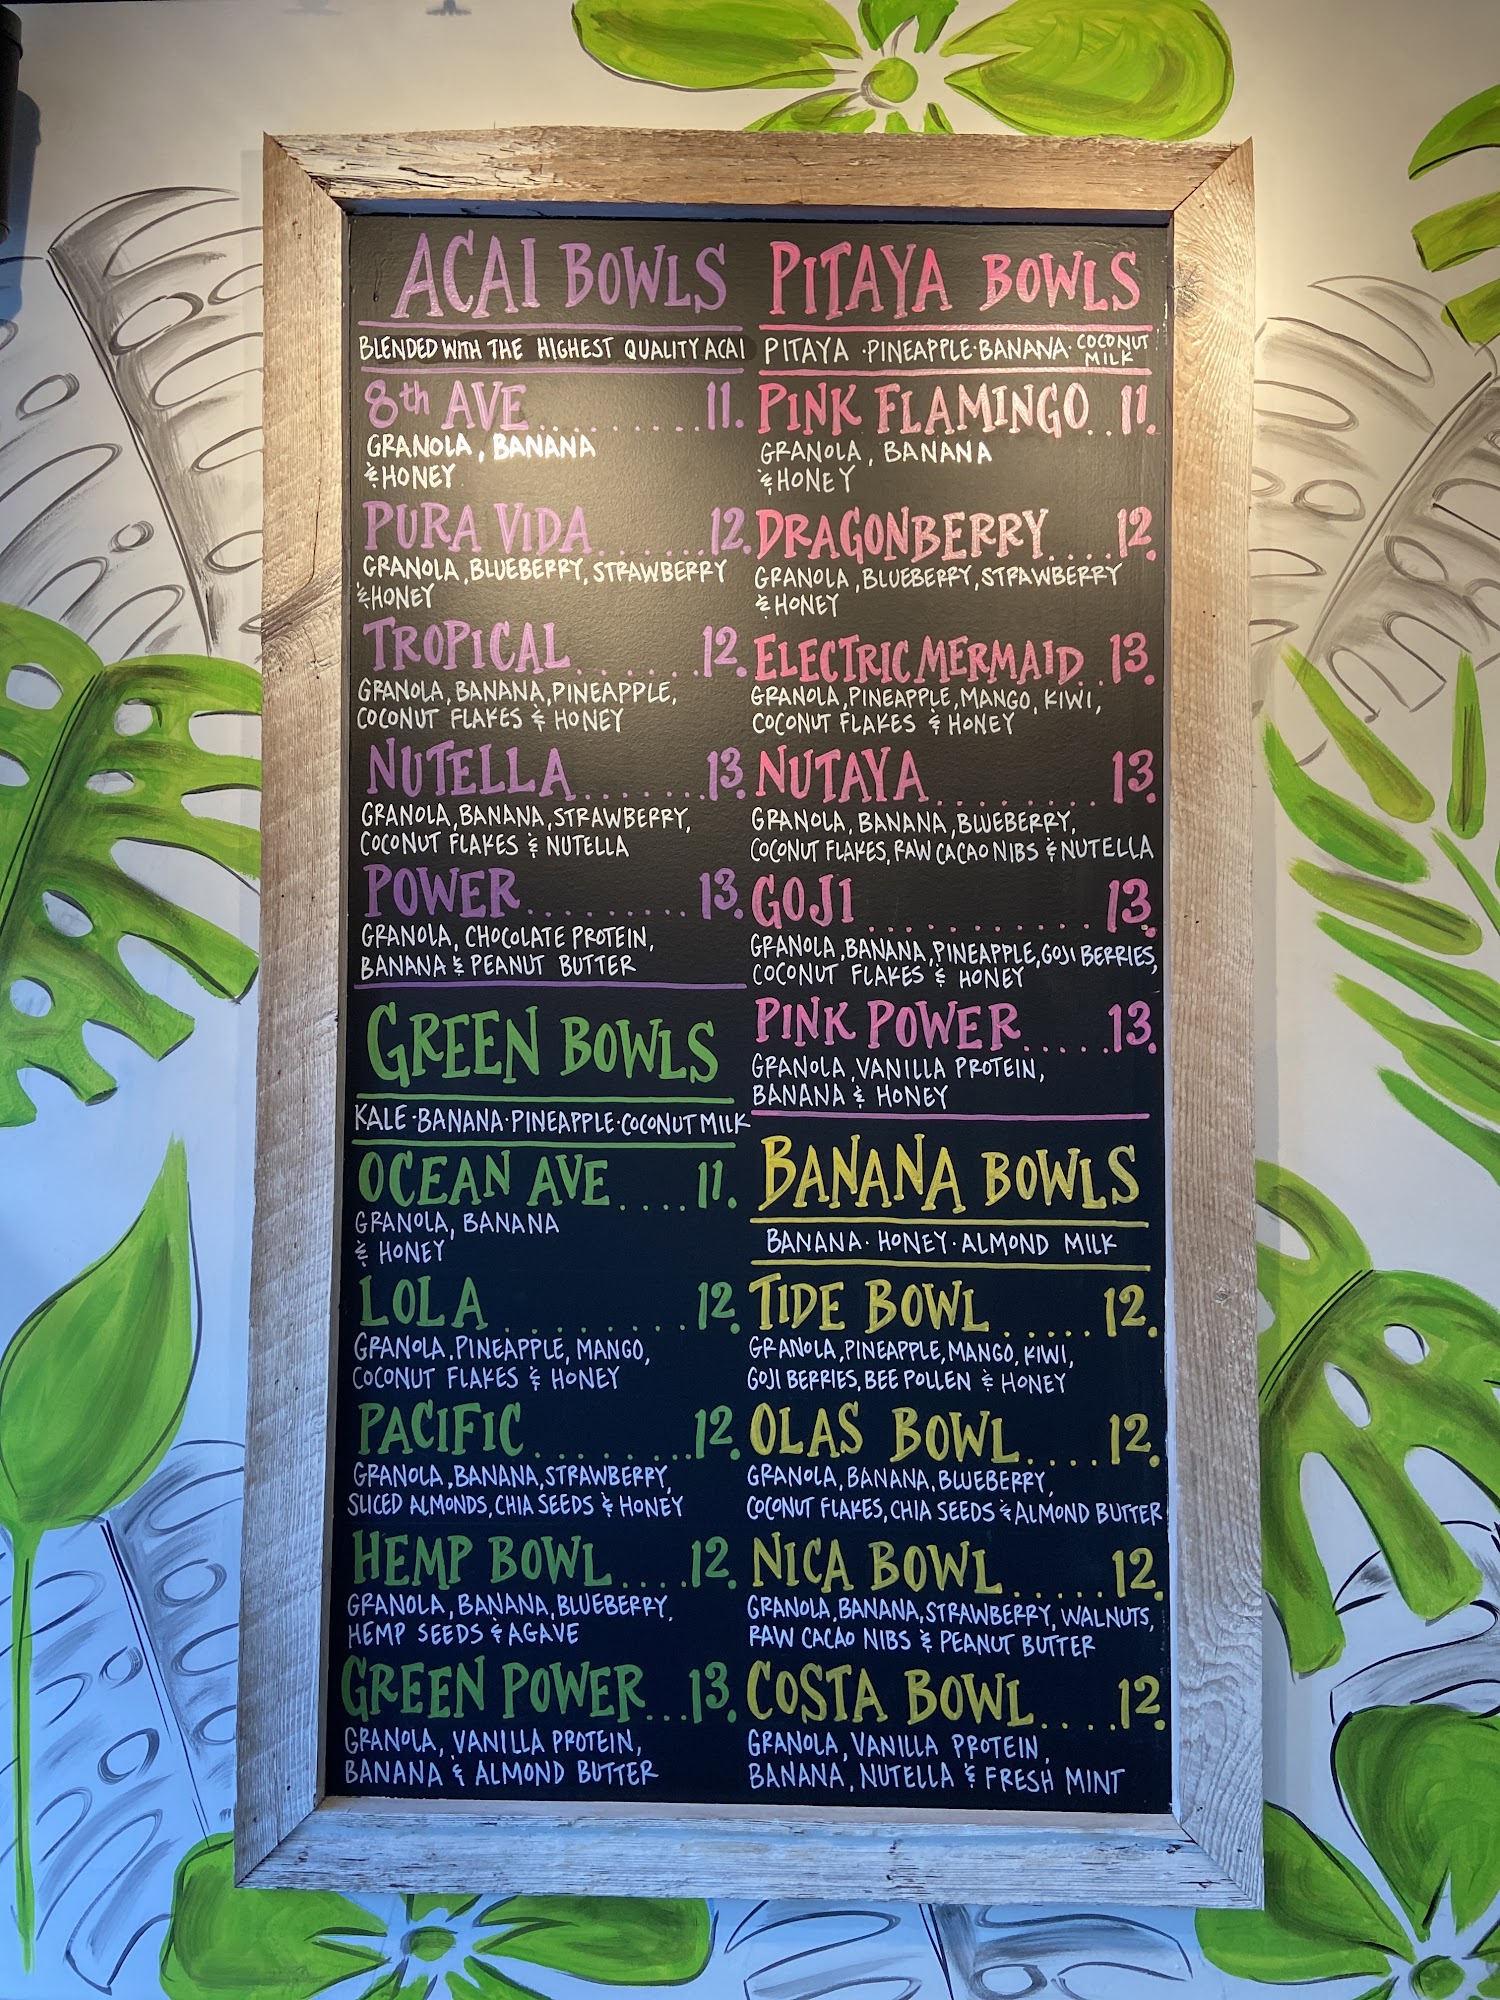 ACAI BOWLS
BLENDED WITH THE HIGHEST QUALITY ACAI
8th AVE..........11.
GRANOLA, BANANA
& HONEY
PURA VIDA.......12.
GRANOLA, BLUEBERRY, STRAWBERRY
& HONEY
TROPICAL.......12.
GRANOLA, BANANA, PINEAPPLE,
COCONUT FLAKES & HONEY
NUTELLA.......13.
GRANOLA, BANANA, STRAWBERRY,
COCONUT FLAKES & NUTELLA
POWER.........13.
GRANOLA, CHOCOLATE PROTEIN,
BANANA & PEANUT BUTTER
GREEN BOWLS
KALE·BANANA·PINEAPPLE·COCONUT MILK
OCEAN AVE....11.
GRANOLA, BANANA
& HONEY
LOLA.........12.
GRANOLA, PINEAPPLE, MANGO,
COCONUT FLAKES & HONEY
PACIFIC.........12.
GRANOLA, BANANA, STRAWBERRY,
SLICED ALMONDS, CHIA SEEDS & HONEY
HEMP BOWL....12.
GRANOLA, BANANA, BLUEBERRY,
HEMP SEEDS & AGAVE
GREEN POWER...13.
GRANOLA, VANILLA PROTEIN,
BANANA & ALMOND BUTTER
PITAYA BOWLS
PITAYA·PINEAPPLE·BANANA·COCONUT
MILK
PINK FLAMINGO..11.
GRANOLA, BANANA
& HONEY
DRAGONBERRY....12.
GRANOLA, BLUEBERRY, STRAWBERRY
& HONEY
ELECTRIC MERMAID..13.
GRANOLA, PINEAPPLE, MANGO, KIWI,
COCONUT FLAKES & HONEY
NUTAYA........13.
GRANOLA, BANANA, BLUEBERRY,
COCONUT FLAKES, RAW CACAO NIBS & NUTELLA
GOJI..........13.
GRANOLA, BANANA, PINEAPPLE, GOJI BERRIES,
COCONUT FLAKES & HONEY
PINK POWER.....13.
GRANOLA, VANILLA PROTEIN,
BANANA & HONEY
BANANA BOWLS
BANANA·HONEY·ALMOND MILK
TIDE BOWL.....12.
GRANOLA, PINEAPPLE, MANGO, KIWI,
GOJI BERRIES, BEE POLLEN & HONEY
OLAS BOWL....12.
GRANOLA, BANANA, BLUEBERRY,
COCONUT FLAKES, CHIA SEEDS & ALMOND BUTTER
NICA BOWL.....12.
GRANOLA, BANANA, STRAWBERRY, WALNUTS,
RAW CACAO NIBS & PEANUT BUTTER
COSTA BOWL....12.
GRANOLA, VANILLA PROTEIN,
BANANA, NUTELLA & FRESH MINT